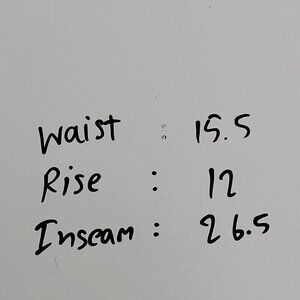 Waist : 15.5
Rise : 12
Inseam : 26.5